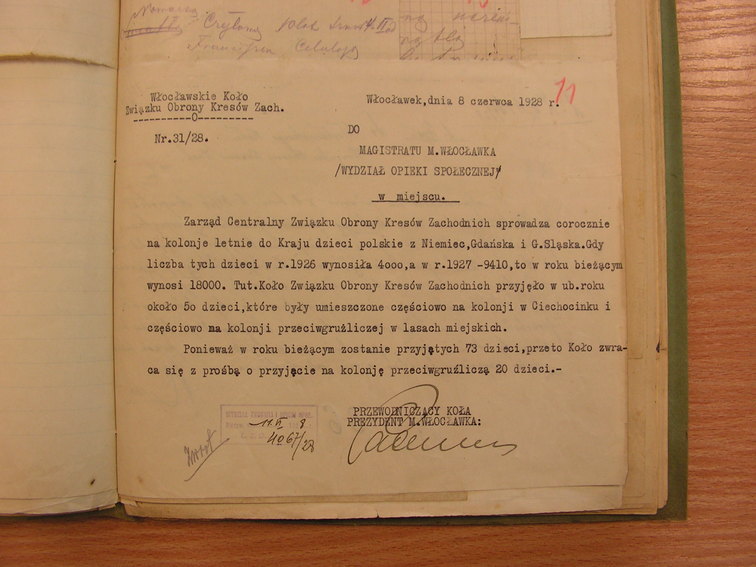 Włocławskie Koło
Związku Obrony Kresów Zach.
----------O---------
Nr.31/28.
Włocławek,dnia 8 czerwca 1928 r.
11
DO
MAGISTRATU M.WŁOCŁAWKA
/WYDZIAŁ OPIEKI SPOŁECZNEJ/
w miejscu.
Zarząd Centralny Związku Obrony Kresów Zachodnich sprowadza corocznie
na kolonje letnie do Kraju dzieci polskie z Niemiec,Gdańska i G.Sląska.Gdy
liczba tych dzieci w r.1926 wynosiła 4ooo,a w r.1927 -9410,to w roku bieżącym
wynosi 18000. Tut.Koło Związku Obrony Kresów Zachodnich przyjęło w ub.roku
około 5o dzieci,które były umieszczone częściowo na kolonji w Ciechocinku i
częściowo na kolonji przeciwgruźliczej w lasach miejskich.
Ponieważ w roku bieżącym zostanie przyjętych 73 dzieci,przeto Koło zwra-
ca się z prośbą o przyjęcie na kolonję przeciwgruźliczą 20 dzieci.-
PRZEWODNICZĄCY KOŁA
PREZYDENT M.WŁOCŁAWKA:
4067/28